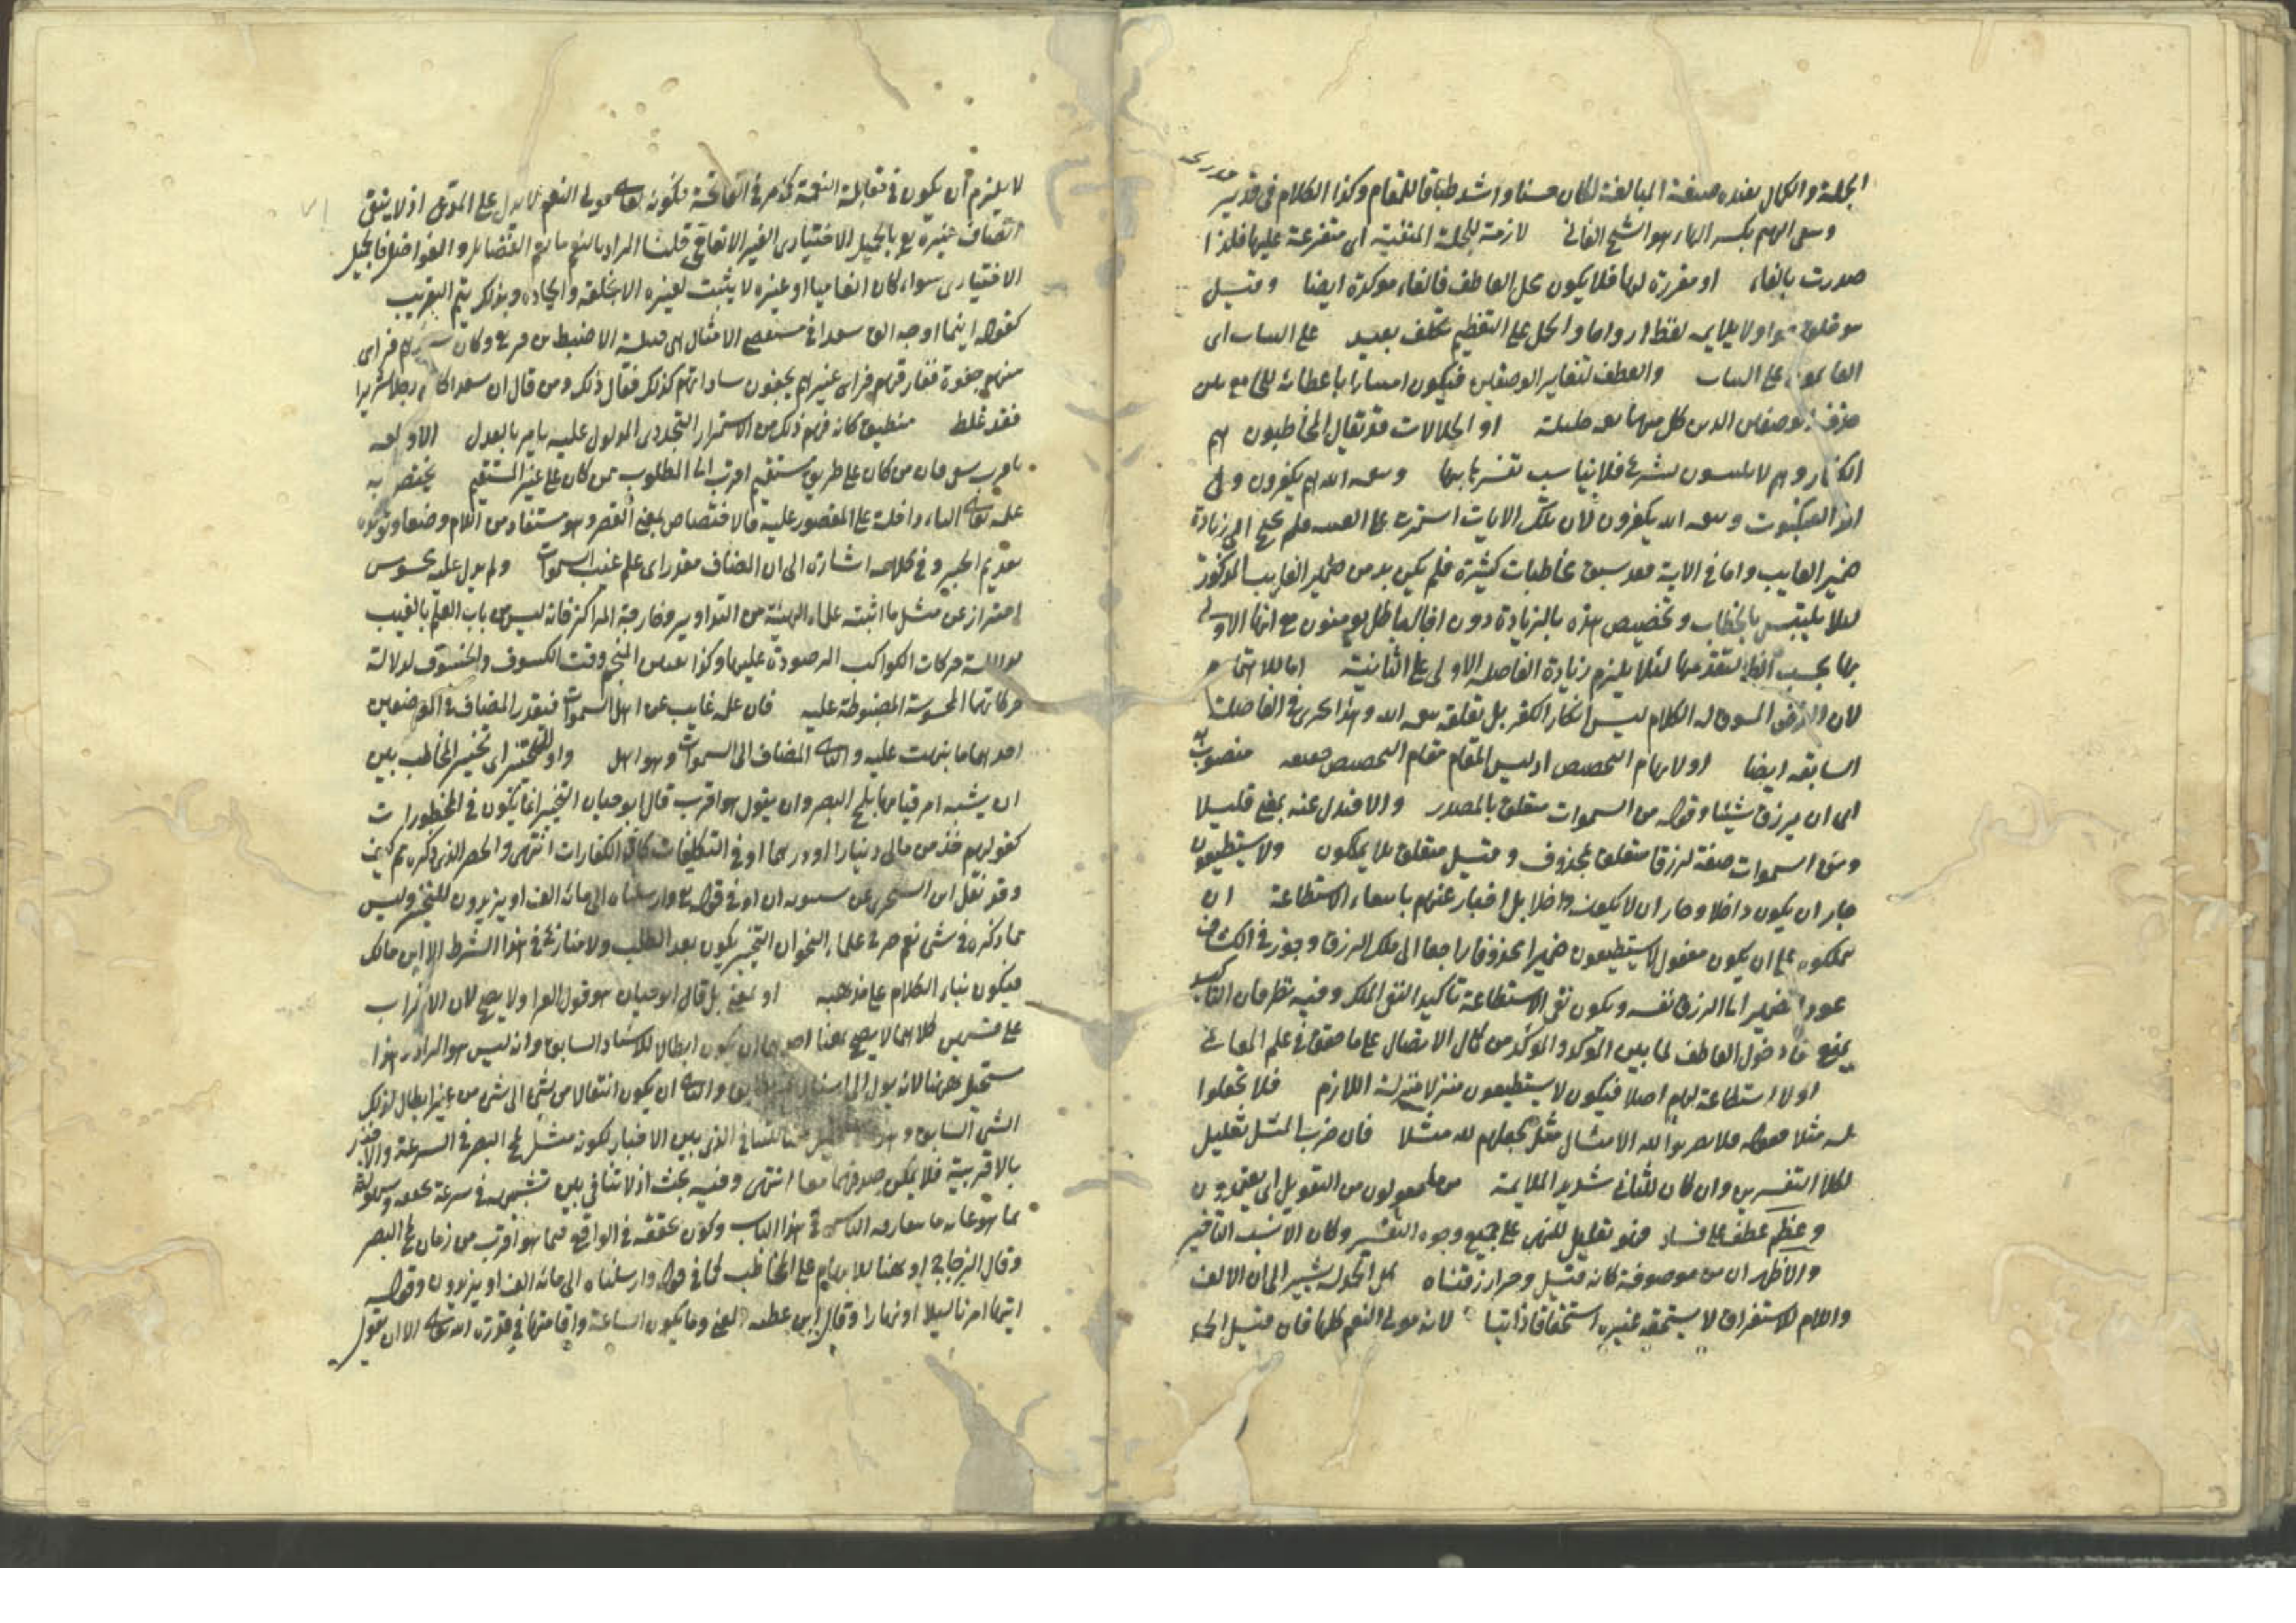 الجملة والكمال بعده صيغة المبالغة لكان حسنا واشد طباقا للمقام وكذا الكلام في قدير
وسمى الهم بكسر الهاء هو الشيخ الفاني لازمة للجملة المنفية اى متفرعة عليها فلذا
صدرت بالفاء او مقررة لها فلا يكون محل العاطف فالفاء موكدة ايضا وقيل
ولا يلايمه لفظ ازواجا والحمل على التعظيم تكلف بعيد على البنات اى
على البنات والعطف لتغاير الوصفين فيكون امتنانا باعطاء الجامع بين
الوصفين الذين كل منهما نعمة جليلة او الحلالات قد يقال المخاطبون هم
الكفار وهم لا يتلبسون بشرع فلا يناسب تفسيرها بها وبنعمة الله هم يكفرون وفى
اخر العنكبوت وبنعمة الله يكفرون لان تلك الايات استمرت على الغيبة فلم يحتج الى زيادة
ضمير الغايب واما في الاية فقد سبق مخاطبات كثيرة فلم يكن بد من ضمير الغايب الموكد
لئلا يلتبس بالخطاب وتخصيص هذه بالزيادة دون افبالباطل يومنون مع انها الاولى
بها بحسب الظاهر لتقدمها لئلا يلزم زيادة الفاصلة الاولى على الثانية اما للاهتمام
لان المسوق له الكلام ليس انكار الكفر بل تعلقه بنعمة الله وهذا يجرى في الفاصلة
السابقة ايضا او لايهام التخصيص اذ ليس المقام مقام التخصيص حقيقة منصوبا به
اى ان يرزق شيئا وقوله من السموات متعلق بالمصدر والا فبدل عنه بمعنى قليلا
ومن السموات صفة لرزقا متعلق بمحذوف وقيل متعلق بلا يملكون ولا يستطيعون
جاز ان يكون داخلا وجاز ان لا يكون داخلا بل اخبار عنهم بانتفاء الاستطاعة ان
يملكوه على ان يكون مفعول لا يستطيعون ضميرا محذوفا راجعا الى ملك الرزق وجوز في الكشاف
عود الضمير الى الرزق نفسه ويكون نفي الاستطاعة تاكيدا لنفي الملك وفيه نظر فان التاكيد
يمنع دخول العاطف لما بين الموكد والموكد من كمال الاتصال على ما حقق في علم المعاني
او لا استطاعة لهم اصلا فيكون لا يستطيعون منزلا منزلة اللازم فلا تجعلوا
له مثلا فقوله فلا تضربوا لله الامثال مثل بجعلهم لله مثلا فان ضرب المثل تعليل
لكلا التفسيرين وان كان للثاني شديد الملايمة من التعويل اى يعتمدون
وعظم عطف على فساد فهو تعليل للنهي على جميع وجوه التفسير وكان الانسب التاخير
والاظهر ان من موصوفة كانه قيل وحرا رزقناه كل الحمد له يشير الى ان الالف
واللام للاستغراق لا يستحقه غيره استحقاقا ذاتيا لانه مولى النعم كلها فان قيل الحمد
لا يلزم ان يكون في مقابلة النعمة كما مر في الفاتحة فكونه تعالى مولى النعم لا يدل على المدعى اذ لا ينفى
اتصاف غيره تع بالجميل الاختيارى الغير الانعامى قلنا المراد بالنعم ما يعم الفضايل والفواضل فالجميل
الاختيارى سواء كان انعاميا او غيره لا يثبت لغيره الا بخلقه وايجاده وبذلك يتم التقريب
كقوله اينما اوجه الق سعدا في مستقصى الامثال هى قبيلة الاضبط بن قريع وكان فراى
منهم جفوة ففارقهم فراى غيرهم يجفون ساداتهم كذلك فقال ذلك ومن قال ان سعدا كان رجلا شريرا
فقد غلط منطيق كانه فهم ذلك من الاستمرار التجددى المدلول عليه بيامر بالعدل الا وبلغه
باقرب سعى فان من كان على طريق مستقيم اقرب الى المطلوب ممن كان على غير المستقيم يختص به
علمه تعالى الباء داخلة على المقصور عليه فالاختصاص بمعنى القصر وهو مستفاد من اللام وضعا ومن
تقديم الخبر وفي كلامه اشارة الى ان المضاف مقدر اى علم غيب السموات ولم يدل عليه محسوس
احتراز عن مثل ما اثبته علماء الهيئة من التداوير وخارجة المراكز فانه ليس من باب العلم بالغيب
لدلالة حركات الكواكب المرصودة عليها وكذا تعيين المنجم وقت الكسوف والخسوف لدلالة
حركاتها المحسوسة المضبوطة عليه فان علمه غايب عن اهل السموات فيقدر المضاف في الموضعين
احدهما ما نبهت عليه والثاني المضاف الى السموات وهو اهل واو للتخيير اى تخيير المخاطب بين
ان يشبه امر قيامها بلمح البصر وان يقول هو اقرب قال ابو حيان التخيير انما يكون في المحظورات
كقولهم خذ من مالى دينارا او درهما او في التكليفات كاية الكفارات انتهى والحصر الذى ذكره ثم كيف
وقد نقل ابن الشجرى عن سيبويه ان او في قوله تع وارسلناه الى مائة الف او يزيدون للتخيير وليس
مما ذكره في شى نعم صرح علماء النحو ان التخيير يكون بعد الطلب ولا منازع في هذا الشرط الا ابن مالك
فيكون بناء الكلام على مذهبه او بمعنى بل قال ابو حيان هو قول الفراء ولا يصح لان الاضراب
على قسمين كلاهما لا يصح ههنا احدهما ان يكون ابطالا للاسناد السابق وانه ليس هو المراد وهذا
مستحيل ههنا لانه يؤل الى اسناد غير مطابق والثاني ان يكون انتقالا من شى الى شى من غير ابطال لذلك
الشى السابق وهذا مستحيل هنا للتنافي الذى بين الاخبار بكونه مثل لمح البصر في السرعة والاخبار
بالاقربية فلا يمكن صدقهما معا انتهى وفيه بحث اذ لا تنافي بين تشبيهه في سرعة تحققه وسهولته
بما هو غاية ما يتعارفه الناس في هذا الباب وكون تحققه في الواقع فيما هو اقرب من زمان لمح البصر
وقال الزجاجى او ههنا للابهام على المخاطب كما في قوله وارسلناه الى مائة الف او يزيدون وقوله
اتيها امرنا ليلا او نهارا وقال ابن عطية المعنى وما يكون الساعة واقامتها في قدرة الله تعالى الا ان يقول